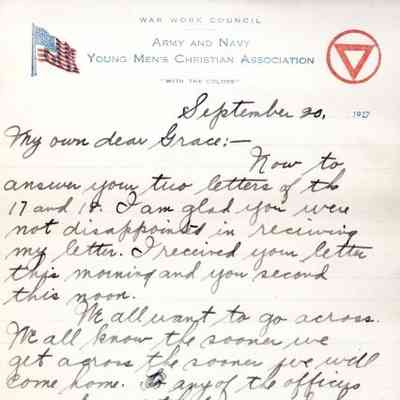 WAR WORK COUNCIL
ARMY AND NAVY
YOUNG MEN'S CHRISTIAN ASSOCIATION
"WITH THE COLORS"
September 20, 1917
My own dear Grace:—
Now to
answer your two letters of the
17 and 18. I am glad you were
not disappointed in receiving
my letter. I received your letter
this morning and you second
this noon.
We all want to go across.
We all know the sooner we
get across the sooner we will
come home. So any of the officers